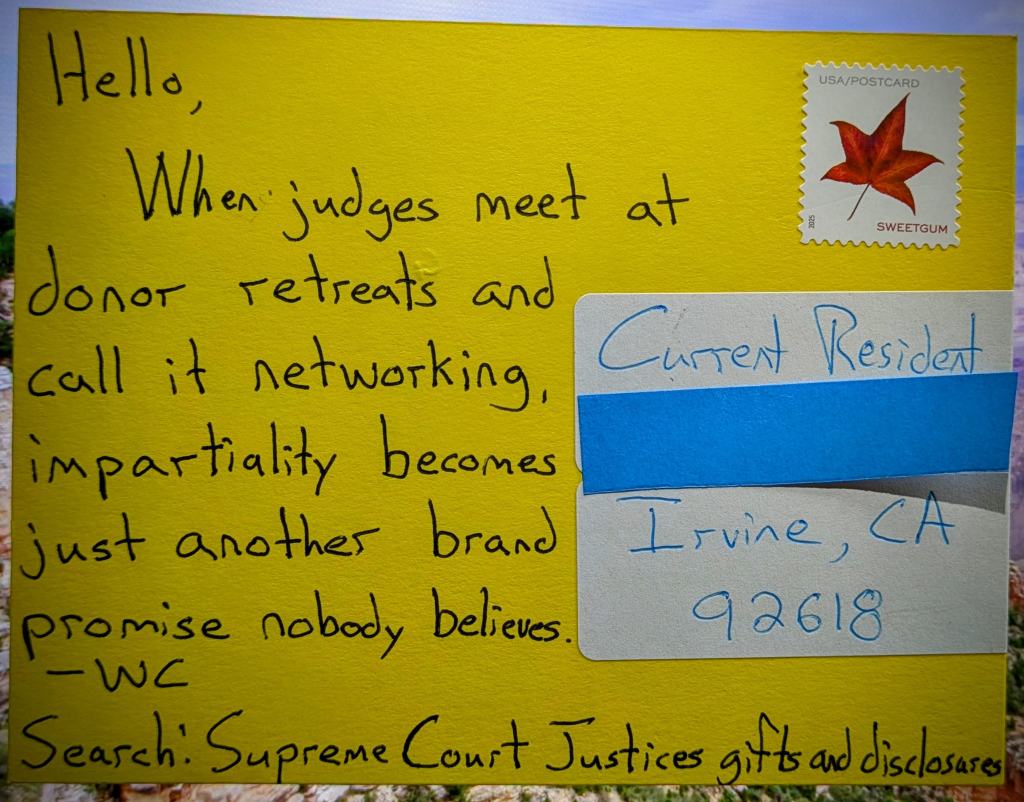 Hello,
USA/POSTCARD
2025
SWEETGUM
When judges meet at
donor retreats and
call it networking,
impartiality becomes
just another brand
promise nobody believes.
-WC
Current Resident
Irvine, CA
92618
Search: Supreme Court Justices gifts and disclosures